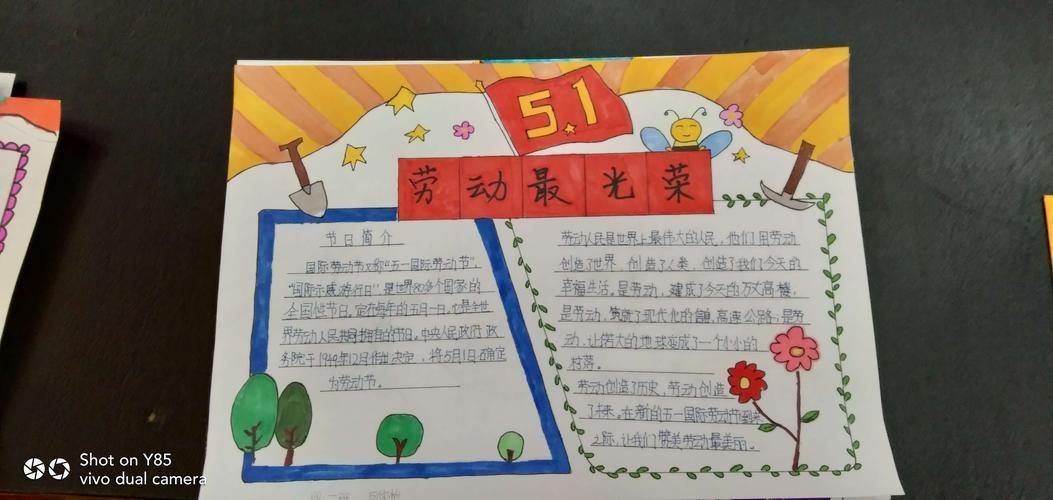 5.1
劳动最光荣
节日简介
国际劳动节又称“五一国际劳动节”,
“国际示威游行日”是世界80多个国家的
全国性节日。定在每年的五月一日。它是全世
界劳动人民共同拥有的节日。中央人民政府政
务院于1949年12月作出决定,将5月1日确定
为劳动节。
劳动人民是世界上最伟大的人民,他们用劳动
创造了世界,创造了人类,创造了我们今天的
幸福生活。是劳动,建成了今天的万丈高楼,
是劳动,筑就了现代化的高速公路;是劳
动,让偌大的地球变成了一个小小的
村落。
劳动创造了历史,劳动创造
了未来。在新的五一国际劳动节到来
之际,让我们赞美劳动最美丽。
Shot on Y85
vivo dual camera